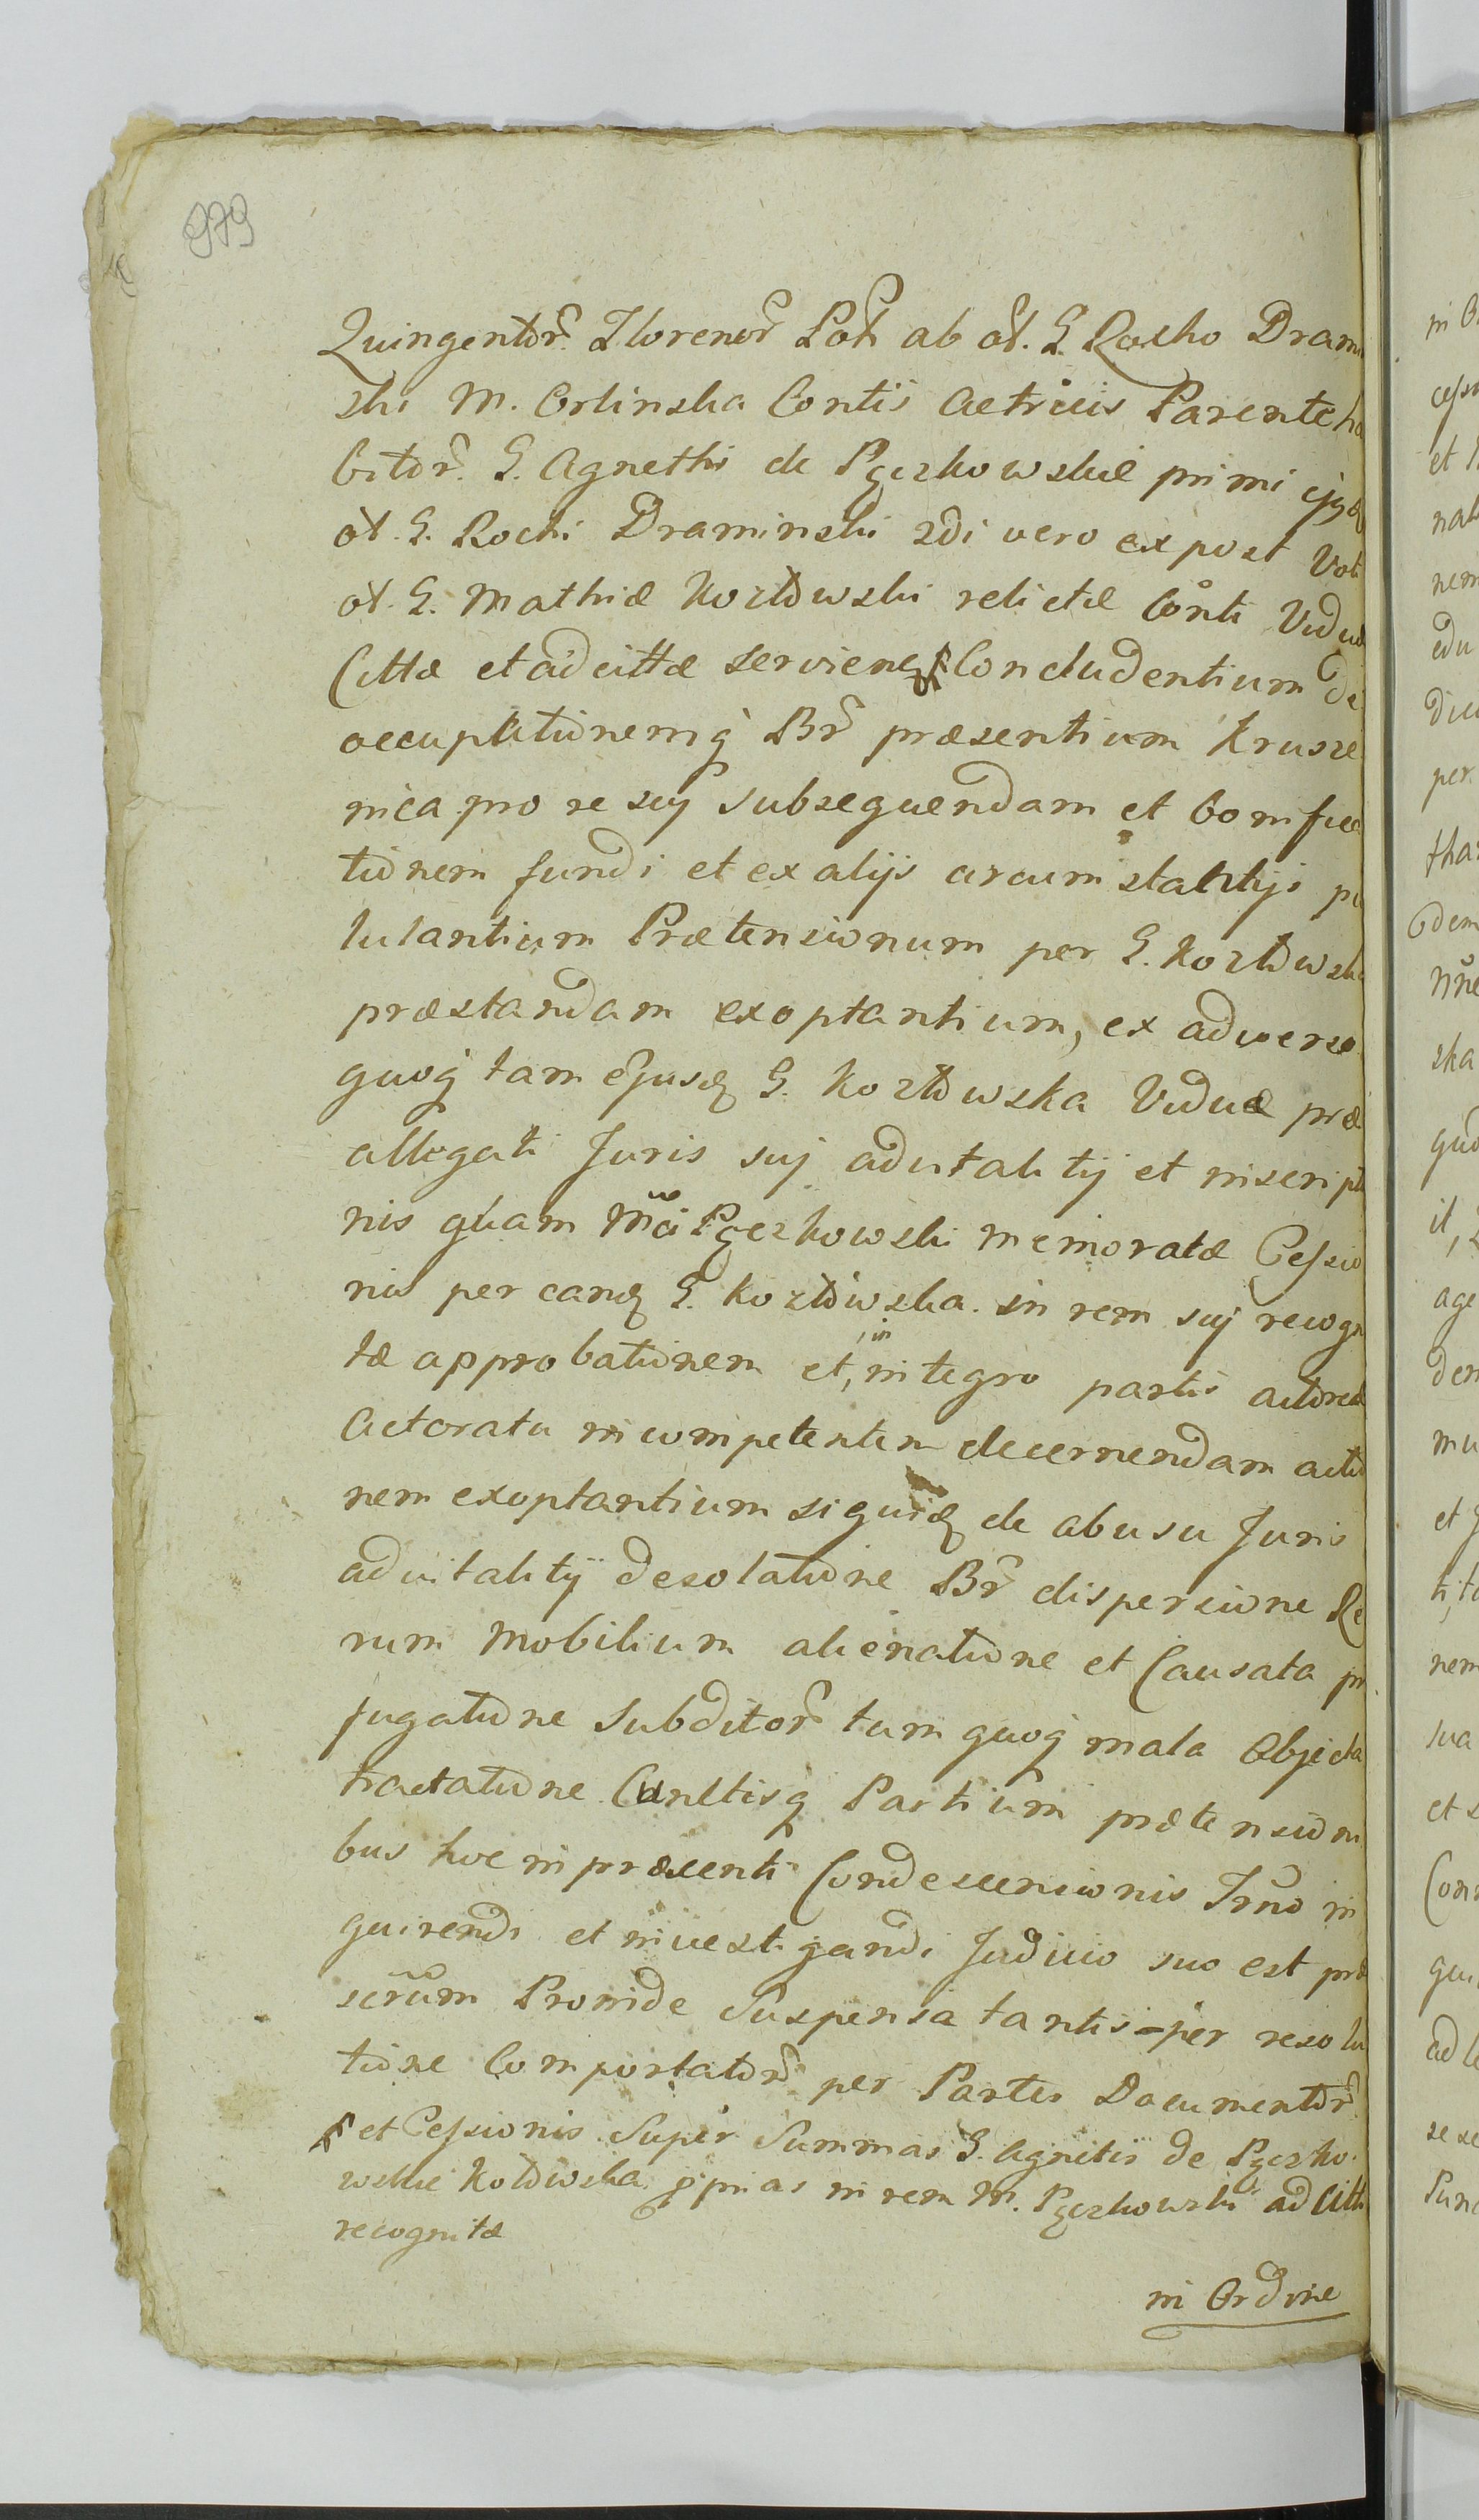 979
Quingentor. Florenor Pol. ab ol. G. Rocho Drami
ski M. Orlinska Contis Actricis Parente ha
bitor. G. Agnethi de Pęczkowskie primi ejsdem
ol. G. Rochi Draminski 2di vero ex post Voti
ol. G. Mathiæ Kozłowski relictæ Conti Viduæ
Cittæ et adcittæ serviens Concludentium de
occupationemq Br præsentium Krusze
nica pro re suj subsequendam et bonifica
tionem fundi et ex alijs circumstantijs po
lulantium Prætensionum per G. Kozłowska
præstandam exoptantium, ex adverso
quoq tam ejusd G. Kozłowska Viduæ præ
allegati Juris suj advitalitij et inscriptio
nis quam Mci Pęczkowski memoratæ Cessio
nis per eand G. Kozłowska in rem suj recogni
tæ approbationem et, in integro partis actoreæ
Actoratu incompetentem decernendam actio
nem exoptantium siquid de abusu Juris
advitalitij desolatione Br dispersione Re
rum Mobilium alienatione et Causata pro
fugatione Subditor tum quoq mala Objecta
tractatione Cunctisq Partium prætensioni
bus hoc in præsenti Condescensionis Trno in
quirendi et investigandi Judicio suo est præ
scrum Proinde Suspensa tantis-per resolu
tione Comportator per Partes Documentor
et Cessionis Super Summas G. Agnetis de Pęczko
wskie Kołowska pprias in rem M. Pęczkowski ad Citti
recognitæ
in Ordine